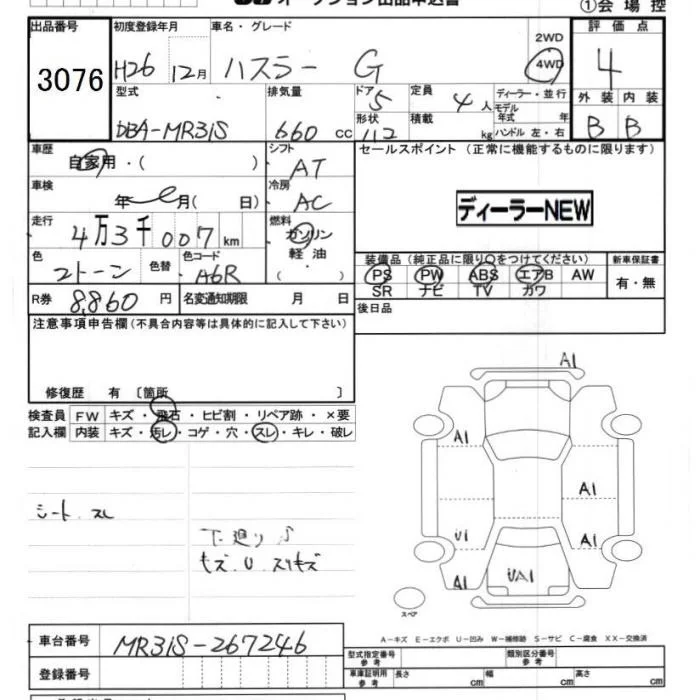 オークション出品申込書
①会場控
出品番号
3076
初度登録年月
H26 12月
車名・グレード
ハスラー G
2WD
4WD
評価点
4
型式
DBA-MR31S
排気量
660 cc
ドア 5
定員 4人
ディーラー・並行
モデル
年式 年
形状
積載 kg
ハンドル 左・右
外装 内装
B B
車歴
自家用・( )
シフト
AT
セールスポイント(正常に機能するものに限ります)
ディーラーNEW
車検
年 月( 日)
冷房
AC
走行
4万3千007km
燃料
ガソリン
軽油
( )
色
2トーン
色替
色コード
A6R
装備品(純正品に限り○をつけてください)
PS PW ABS エアB AW
SR ナビ TV カワ
新車保証書
有・無
R券
8,860円
名変通知期限 月 日
後日品
注意事項申告欄(不具合内容等は具体的に記入して下さい)
修復歴 有 〔箇所 〕
検査員 FW キズ・飛石・ヒビ割・リペア跡・×要
記入欄 内装 キズ・汚レ・コゲ・穴・スレ・キレ・破レ
シート スレ
下廻り S
キズ U スリキズ
A1
A1
A1
U1
A1
A1
UA1
スペア
A-キズ E-エクボ U-凹み W-補修跡 S-サビ C-腐食 XX-交換済
車台番号
MR31S-267246
登録番号
型式指定番号
参考
類別区分番号
参考
車庫証明用
参考
長さ cm
幅 cm
高さ cm